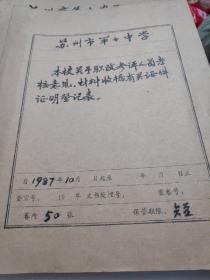 苏州市第十中学
本校关于职改考评人员考
核意见、材料收据有关证件
证明登记表。
自1987年10月 日起至 年 月 日止
全宗号： 19 年文书处理号： 案卷号：
卷内50张 保管期限：